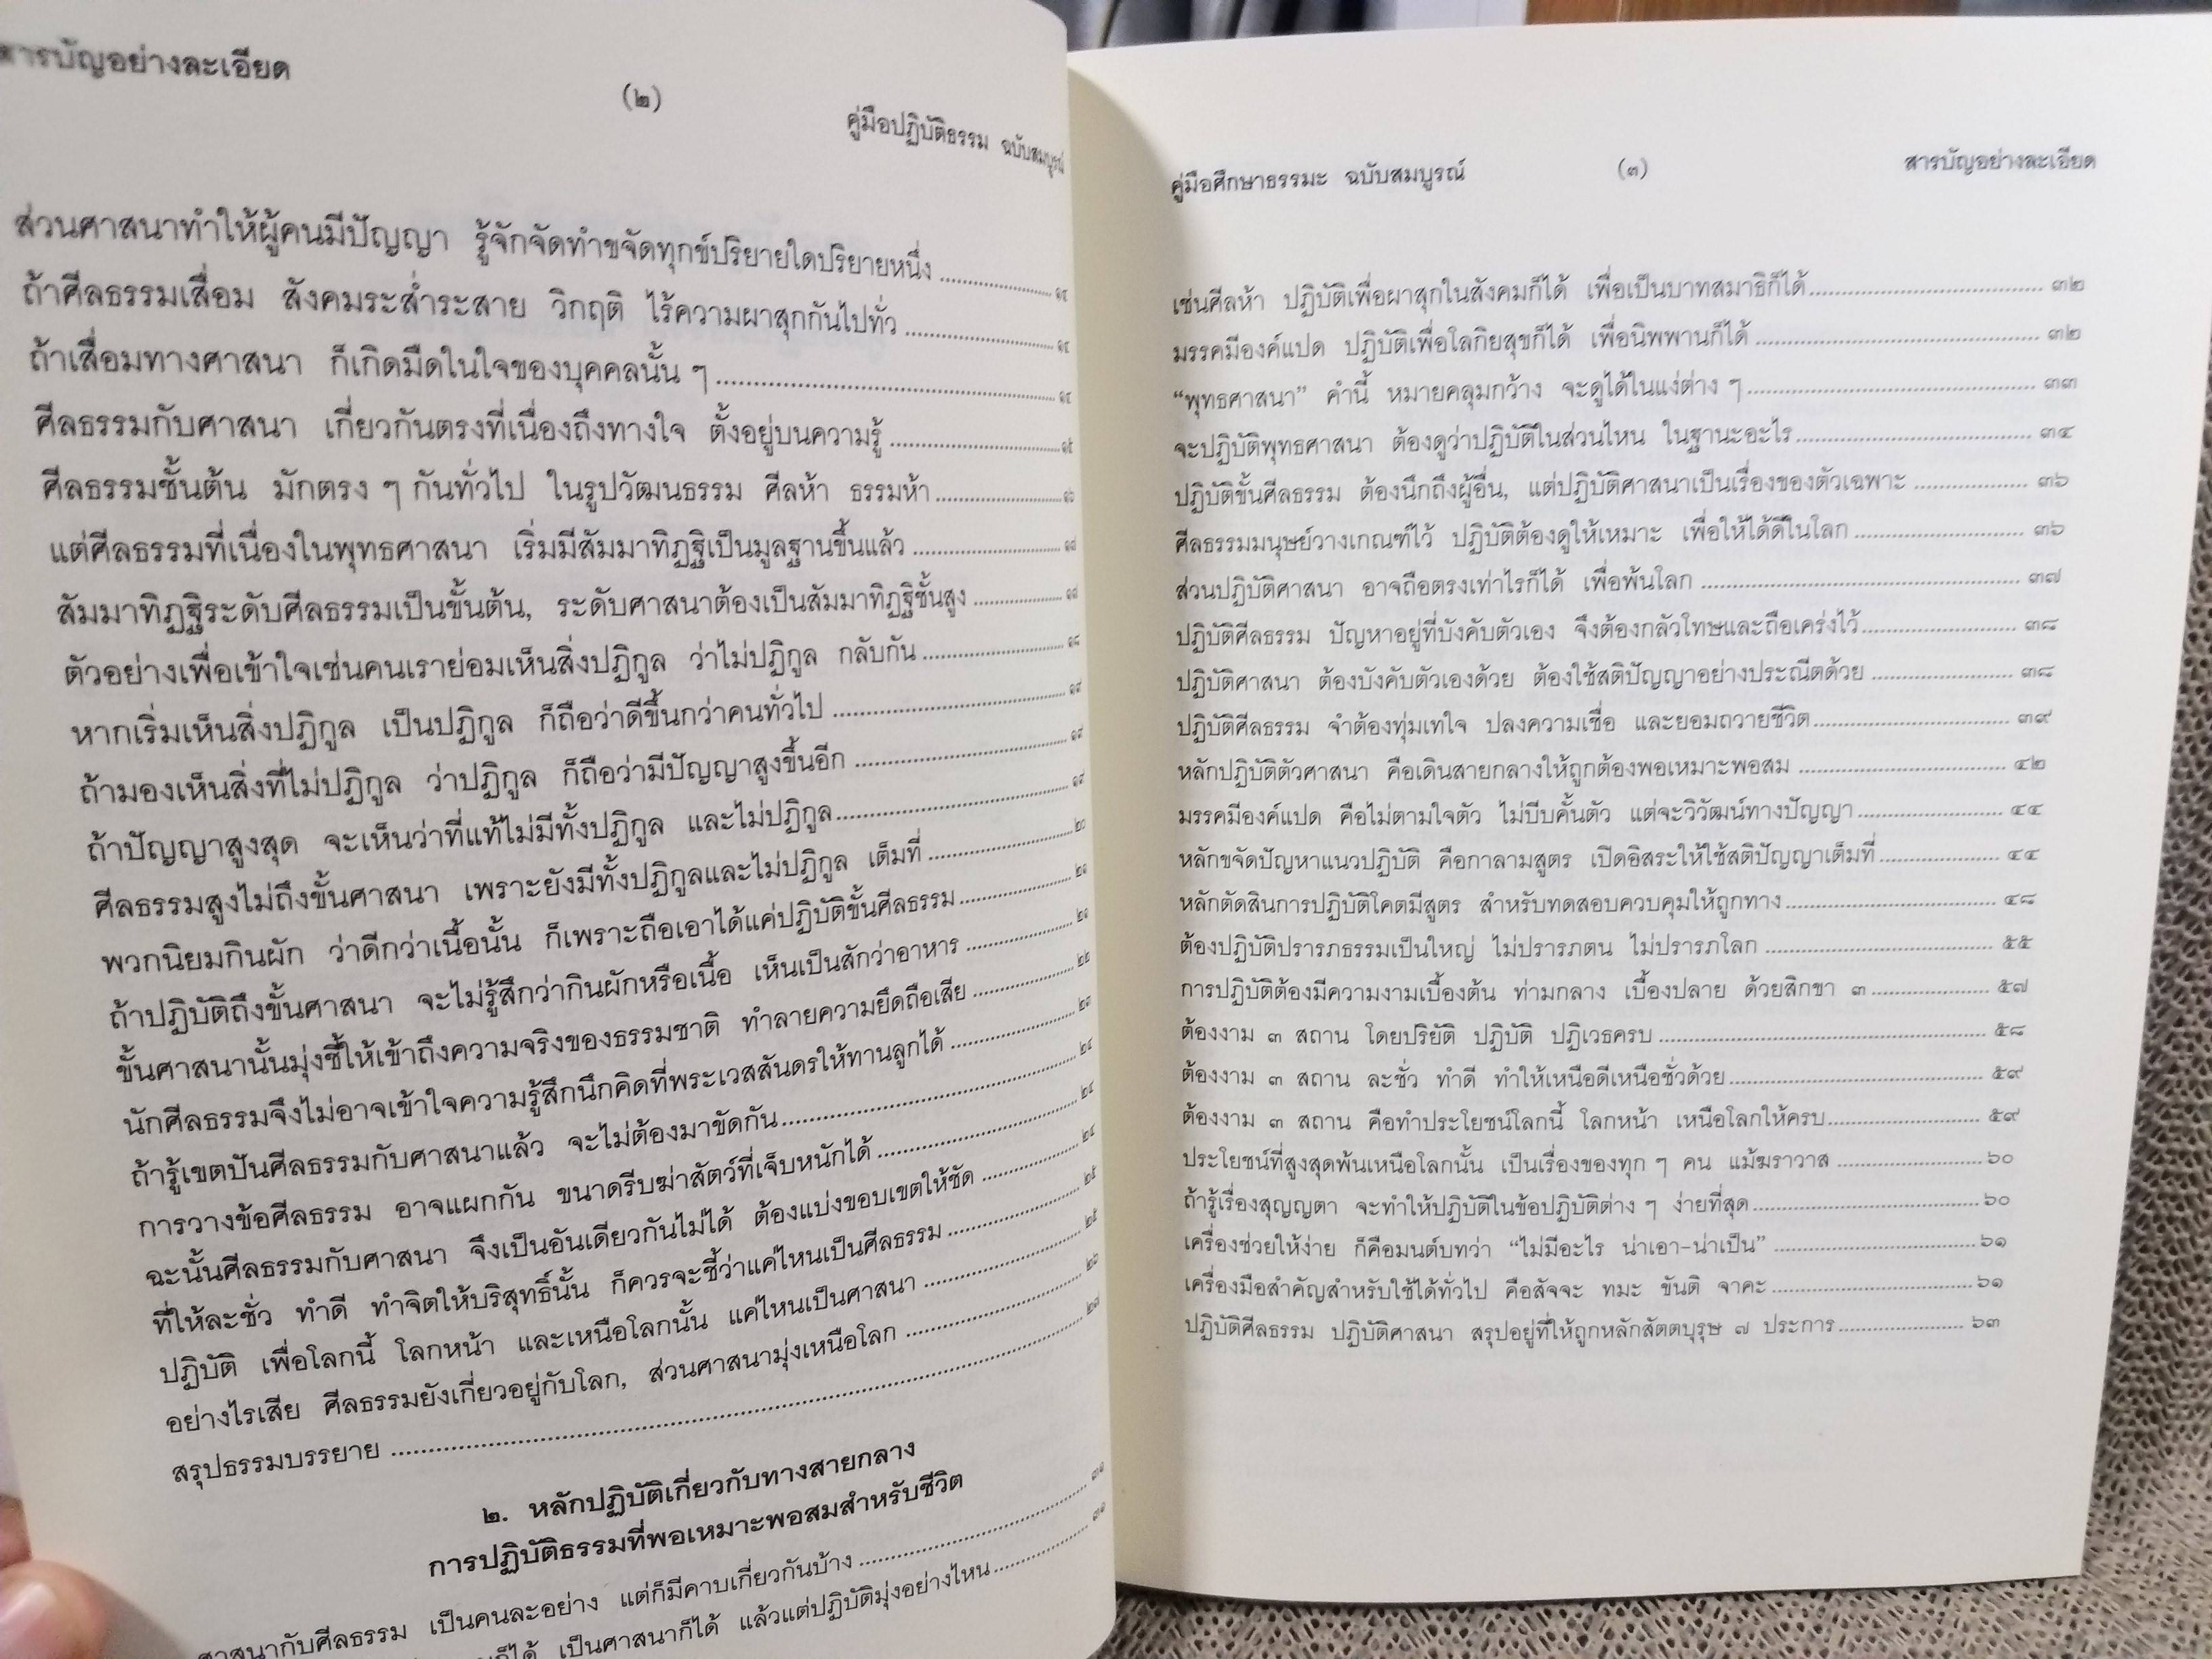 สารบัญอย่างละเอียด
(๒)
คู่มือปฏิบัติธรรม ฉบับสมบูรณ์
ส่วนศาสนาทำให้ผู้คนมีปัญญา รู้จักจัดทำขจัดทุกข์ปริยายใดปริยายหนึ่ง
ถ้าศีลธรรมเสื่อม สังคมระส่ำระสาย วิกฤติ ไร้ความผาสุกกันไปทั่ว
ถ้าเสื่อมทางศาสนา ก็เกิดมืดในใจของบุคคลนั้น ๆ
ศีลธรรมกับศาสนา เกี่ยวกันตรงที่เนื่องถึงทางใจ ตั้งอยู่บนความรู้ ๑๕
ศีลธรรมชั้นต้น มักตรง ๆ กันทั่วไป ในรูปวัฒนธรรม ศีลห้า ธรรมห้า ๑๖
แต่ศีลธรรมที่เนื่องในพุทธศาสนา เริ่มมีสัมมาทิฏฐิเป็นมูลฐานขึ้นแล้ว ๑๗
สัมมาทิฏฐิระดับศีลธรรมเป็นขั้นต้น, ระดับศาสนาต้องเป็นสัมมาทิฏฐิชั้นสูง ๑๗
ตัวอย่างเพื่อเข้าใจเช่นคนเราย่อมเห็นสิ่งปฏิกูล ว่าไม่ปฏิกูล กลับกัน ๑๘
หากเริ่มเห็นสิ่งปฏิกูล เป็นปฏิกูล ก็ถือว่าดีขึ้นกว่าคนทั่วไป ๑๙
ถ้ามองเห็นสิ่งที่ไม่ปฏิกูล ว่าปฏิกูล ก็ถือว่ามีปัญญาสูงขึ้นอีก ๑๙
ถ้าปัญญาสูงสุด จะเห็นว่าที่แท้ไม่มีทั้งปฏิกูล และไม่ปฏิกูล ๑๙
ศีลธรรมสูงไม่ถึงขั้นศาสนา เพราะยังมีทั้งปฏิกูลและไม่ปฏิกูล เต็มที่ ๒๐
พวกนิยมกินผัก ว่าดีกว่าเนื้อนั้น ก็เพราะถือเอาได้แค่ปฏิบัติขั้นศีลธรรม ๒๑
ถ้าปฏิบัติถึงขั้นศาสนา จะไม่รู้สึกว่ากินผักหรือเนื้อ เห็นเป็นสักว่าอาหาร ๒๑
ขั้นศาสนานั้นมุ่งชี้ให้เข้าถึงความจริงของธรรมชาติ ทำลายความยึดถือเสีย ๒๒
นักศีลธรรมจึงไม่อาจเข้าใจความรู้สึกนึกคิดที่พระเวสสันดรให้ทานลูกได้ ๒๓
ถ้ารู้เขตปันศีลธรรมกับศาสนาแล้ว จะไม่ต้องมาขัดกัน ๒๔
การวางข้อศีลธรรม อาจแผกกัน ขนาดรีบฆ่าสัตว์ที่เจ็บหนักได้ ๒๔
ฉะนั้นศีลธรรมกับศาสนา จึงเป็นอันเดียวกันไม่ได้ ต้องแบ่งขอบเขตให้ชัด ๒๔
ที่ให้ละชั่ว ทำดี ทำจิตให้บริสุทธิ์นั้น ก็ควรจะชี้ว่าแค่ไหนเป็นศีลธรรม ๒๕
ปฏิบัติ เพื่อโลกนี้ โลกหน้า และเหนือโลกนั้น แค่ไหนเป็นศาสนา ๒๕
อย่างไรเสีย ศีลธรรมยังเกี่ยวอยู่กับโลก, ส่วนศาสนามุ่งเหนือโลก ๒๖
สรุปธรรมบรรยาย ๒๗
๒. หลักปฏิบัติเกี่ยวกับทางสายกลาง
การปฏิบัติธรรมที่พอเหมาะพอสมสำหรับชีวิต
ศาสนากับศีลธรรม เป็นคนละอย่าง แต่ก็มีคาบเกี่ยวกันบ้าง ๓๑
ก็ได้ เป็นศาสนาก็ได้ แล้วแต่ปฏิบัติมุ่งอย่างไหน ๓๑
คู่มือศึกษาธรรมะ ฉบับสมบูรณ์
(๓)
สารบัญอย่างละเอียด
เช่นศีลห้า ปฏิบัติเพื่อผาสุกในสังคมก็ได้ เพื่อเป็นบาทสมาธิก็ได้ ๓๒
มรรคมีองค์แปด ปฏิบัติเพื่อโลกิยสุขก็ได้ เพื่อนิพพานก็ได้ ๓๒
“พุทธศาสนา” คำนี้ หมายคลุมกว้าง จะดูได้ในแง่ต่าง ๆ ๓๓
จะปฏิบัติพุทธศาสนา ต้องดูว่าปฏิบัติในส่วนไหน ในฐานะอะไร ๓๔
ปฏิบัติขั้นศีลธรรม ต้องนึกถึงผู้อื่น, แต่ปฏิบัติศาสนาเป็นเรื่องของตัวเฉพาะ ๓๖
ศีลธรรมมนุษย์วางเกณฑ์ไว้ ปฏิบัติต้องดูให้เหมาะ เพื่อให้ได้ดีในโลก ๓๖
ส่วนปฏิบัติศาสนา อาจถือตรงเท่าไรก็ได้ เพื่อพ้นโลก ๓๗
ปฏิบัติศีลธรรม ปัญหาอยู่ที่บังคับตัวเอง จึงต้องกลัวโทษและถือเคร่งไว้ ๓๘
ปฏิบัติศาสนา ต้องบังคับตัวเองด้วย ต้องใช้สติปัญญาอย่างประณีตด้วย ๓๘
ปฏิบัติศีลธรรม จำต้องทุ่มเทใจ ปลงความเชื่อ และยอมถวายชีวิต ๓๙
หลักปฏิบัติตัวศาสนา คือเดินสายกลางให้ถูกต้องพอเหมาะพอสม ๔๒
มรรคมีองค์แปด คือไม่ตามใจตัว ไม่บีบคั้นตัว แต่จะวิวัฒน์ทางปัญญา ๔๔
หลักขจัดปัญหาแนวปฏิบัติ คือกาลามสูตร เปิดอิสระให้ใช้สติปัญญาเต็มที่ ๔๔
หลักตัดสินการปฏิบัติโคตมีสูตร สำหรับทดสอบควบคุมให้ถูกทาง ๔๘
ต้องปฏิบัติปรารภธรรมเป็นใหญ่ ไม่ปรารภตน ไม่ปรารภโลก ๕๕
การปฏิบัติต้องมีความงามเบื้องต้น ท่ามกลาง เบื้องปลาย ด้วยสิกขา ๓ ๕๗
ต้องงาม ๓ สถาน โดยปริยัติ ปฏิบัติ ปฏิเวธครบ ๕๘
ต้องงาม ๓ สถาน ละชั่ว ทำดี ทำให้เหนือดีเหนือชั่วด้วย ๕๙
ต้องงาม ๓ สถาน คือทำประโยชน์โลกนี้ โลกหน้า เหนือโลกให้ครบ ๕๙
ประโยชน์ที่สูงสุดพ้นเหนือโลกนั้น เป็นเรื่องของทุก ๆ คน แม้ฆราวาส ๖๐
ถ้ารู้เรื่องสุญญตา จะทำให้ปฏิบัติในข้อปฏิบัติต่าง ๆ ง่ายที่สุด ๖๐
เครื่องช่วยให้ง่าย ก็คือมนต์บทว่า “ไม่มีอะไร น่าเอา-น่าเป็น” ๖๑
เครื่องมือสำคัญสำหรับใช้ได้ทั่วไป คือสัจจะ ทมะ ขันติ จาคะ ๖๑
ปฏิบัติศีลธรรม ปฏิบัติศาสนา สรุปอยู่ที่ให้ถูกหลักสัตตบุรุษ ๗ ประการ ๖๓